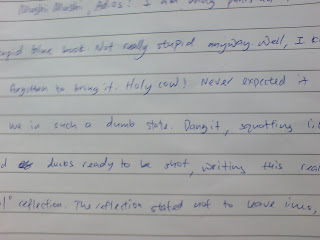 stupid blue book. Not really stupid anyway. Well, I k
forgotten to bring it. Holy cow! Never expected it
me in such a dumb state. Dangit, squatting li
ducks ready to be shot, writing this rea
" reflection. The reflection stated not to leave